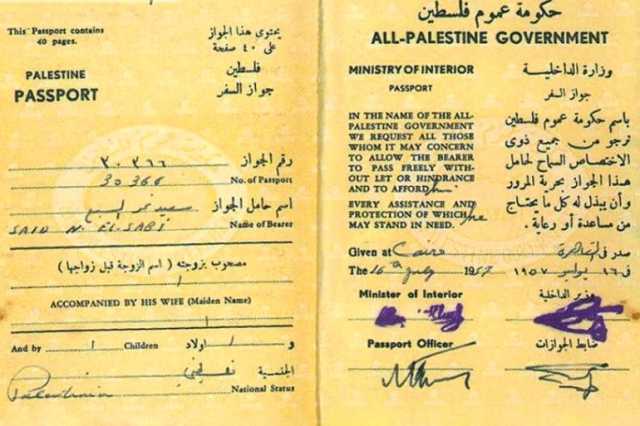 This Passport contains
40 pages.
يحتوي هذا الجواز
على ٤٠ صفحة
PALESTINE
PASSPORT
فلسطين
جواز السفر
رقم الجواز
٣٠٣٦٦
30366
No. of Passport
اسم حامل الجواز
سعيد نمر السبع
SAID N. EL-SABI
Name of Bearer
مصحوب بزوجته (اسم الزوجة قبل زواجها)
ACCOMPANIED BY HIS WIFE (Maiden Name)
و / اولاد
And by Children
الجنسية
National Status
Palestinian
حكومة عموم فلسطين
ALL-PALESTINE GOVERNMENT
MINISTRY OF INTERIOR
PASSPORT
وزارة الداخلية
جواز السفر
IN THE NAME OF THE ALL-
PALESTINE GOVERNMENT
WE REQUEST ALL THOSE
WHOM IT MAY CONCERN
TO ALLOW THE BEARER
TO PASS FREELY WITH-
OUT LET OR HINDRANCE
AND TO AFFORD
EVERY ASSISTANCE AND
PROTECTION OF WHICH he
MAY STAND IN NEED.
باسم حكومة عموم فلسطين
نرجو من جميع ذوى
الاختصاص السماح لحامل
هذا الجواز بحرية المرور
وأن يبذل له كل ما يحتاج
من مساعدة أو رعاية.
Given at Cairo
صدر في القاهرة
The 16th July 1957
في ١٦ يوليو ١٩٥٧
Minister of Interior
وزير الداخلية
Passport Officer
ضابط الجوازات